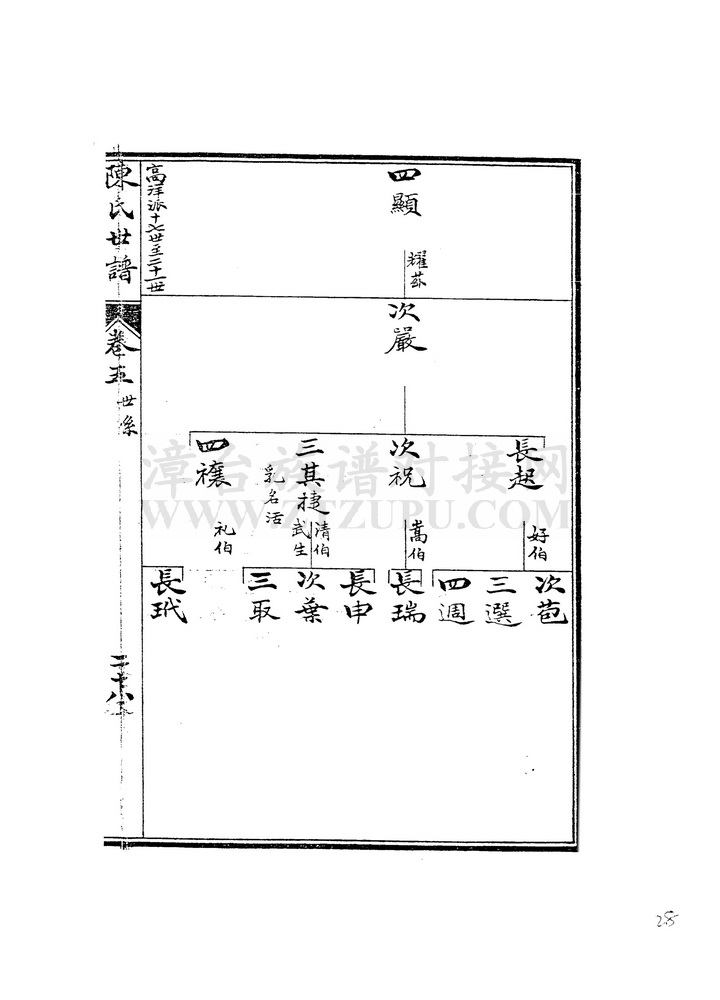 四顯
耀茲
高洋派十七世至二十一世
陳氏世譜
卷五
世系
二十八
次嚴
長起
好伯
次祝
嵩伯
三其捷
乳名活
清伯
武生
四禳
礼伯
次苞
三選
四週
長瑞
長申
次葉
三取
長玳
漳台族谱对接网
WWW.ZTZUPU.COM
28